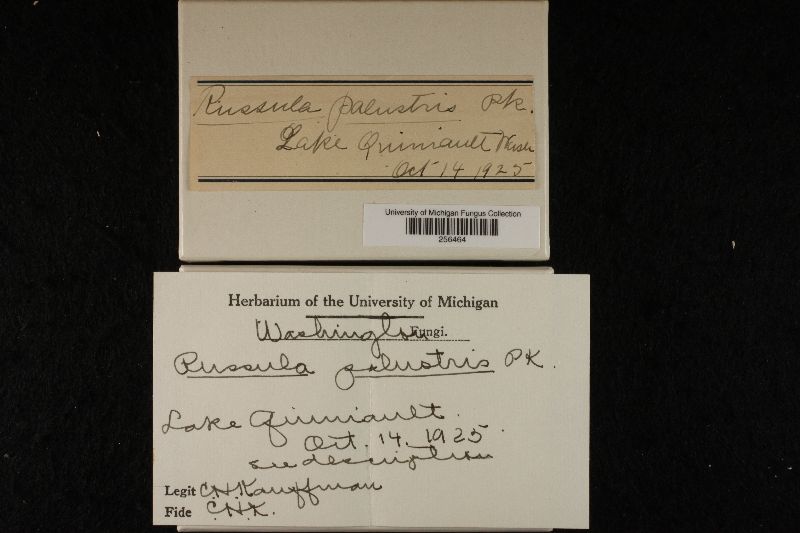 Russula palustris Pk.
Lake Quiniault Wash
Oct 14 1925
University of Michigan Fungus Collection
256464
Herbarium of the University of Michigan
Washington Fungi.
Russula palustris PK.
Lake Quiniault.
Oct. 14. 1925.
see description
Legit C.H. Kauffman
Fide C.H.K.